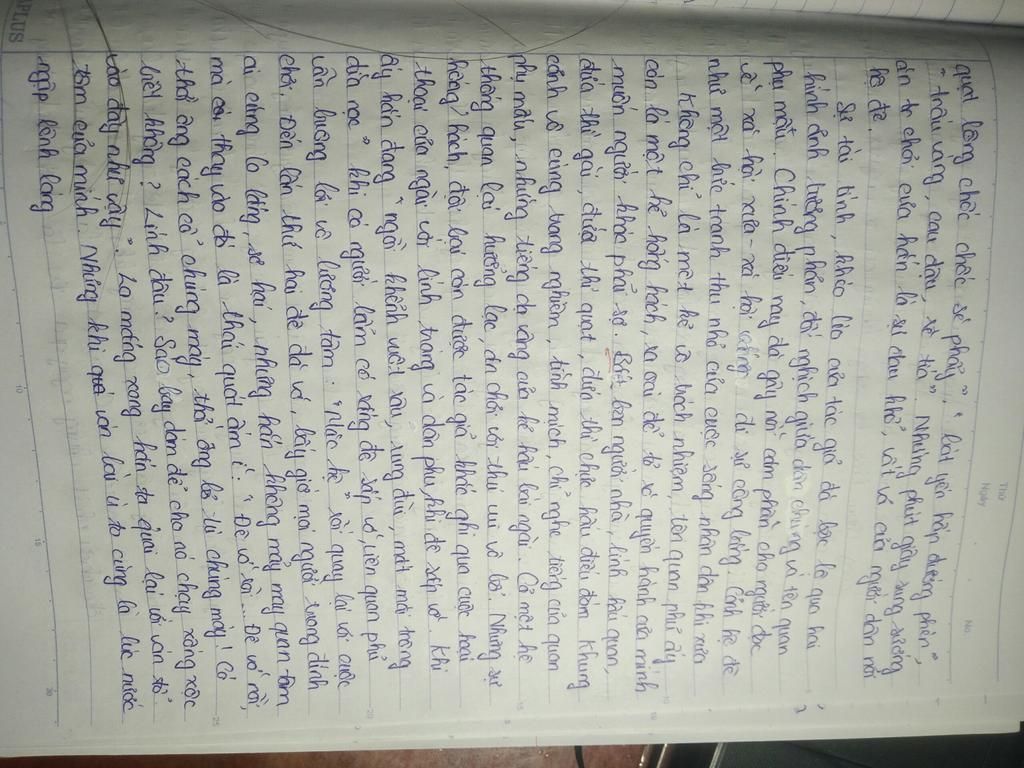 APLUS
Thứ
Ngày
No.
quạt lông chốc chốc sẽ phẩy", "lại yến hấp đường phèn",
"trầu vàng, cau đậu, rễ tía". Nhưng phút giây sung sướng
ăn tơ chơi của hắn là sự đau khổ, vất vả của người dân nơi
hộ đê.
Sự tài tình, khéo léo của tác giả đã bộc lộ qua hai
hình ảnh tương phản, đối nghịch giữa dân chúng và tên quan
phụ mẫu. Chính điều này đã gây nỗi căm phẫn cho người đọc
về xã hội xưa - xã hội đi sự công bằng. Cảnh hộ đê
như một bức tranh thu nhỏ của cuộc sống nhân dân khi xưa
Không chỉ là một kẻ vô trách nhiệm, tên quan phụ ấy
còn là một kẻ hống hách, ra oai để tỏ rõ quyền hành của mình
muốn người khác phải sợ. Bốt bên người nhà, lính hầu quan,
đứa thì gãi, đứa thì quạt, đứa thì chực hầu điếu đóm. Khung
cảnh vô cùng trang nghiêm, tĩnh mịch, chỉ nghe tiếng của quan
phụ mẫu, những tiếng dạ vâng của kẻ hầu bài ngài. Cả một hệ
thống quan lại hưởng lạc, ăn chơi với thú vui vô bổ. Nhưng sự
hống hách, độc lại còn được tác giả khắc ghi qua cuộc hội
thoại của ngài với lính tráng và dân phu khi đê sắp vỡ. Khi
ấy hắn đang "ngồi khểnh vuốt râu, rung đùi, mắt mải trông
đĩa nọc" khi có người lấm có xông đê sắp vỡ, liền quan phủ
vẫn buông lời vô lương tâm: "Mặc kệ", rồi quay lại với cuộc
chơi. Đến lần thứ hai đê đã vỡ, bấy giờ mọi người trong đình
ai cũng lo lắng, sợ hãi, nhưng hắn không mảy may quan tâm
mà còn thay vào đó là thái quát ầm ĩ: "Đê vỡ rồi... Đê vỡ rồi,
thời ông cách cổ chúng mày, thời ông bỏ tù chúng mày! Có
biết không? Lính đâu? Sao bay dám để cho nó chạy xồng xộc
vào đây như vậy". La mắng xong hắn ta quai lại với ván tổ
tôm của mình. Nhưng khi quá ván bài ù to cũng là lúc nước
ngập lênh láng